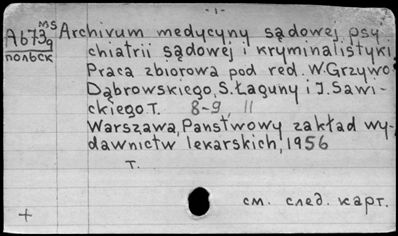 -1-
MS
A673g
польск
Archivum medycyny sądowej psy
chiatrii sądowej i kryminalistyki
Praca zbiorowa pod red. W. Grzywo
Dąbrowskiego, S. Łaguny i J. Sawi-
ckiego. T. 8-9, 11
Warszawa, Państwowy zakład wy-
dawnictw lekarskich, 1956
T.
см. след. карт.
+